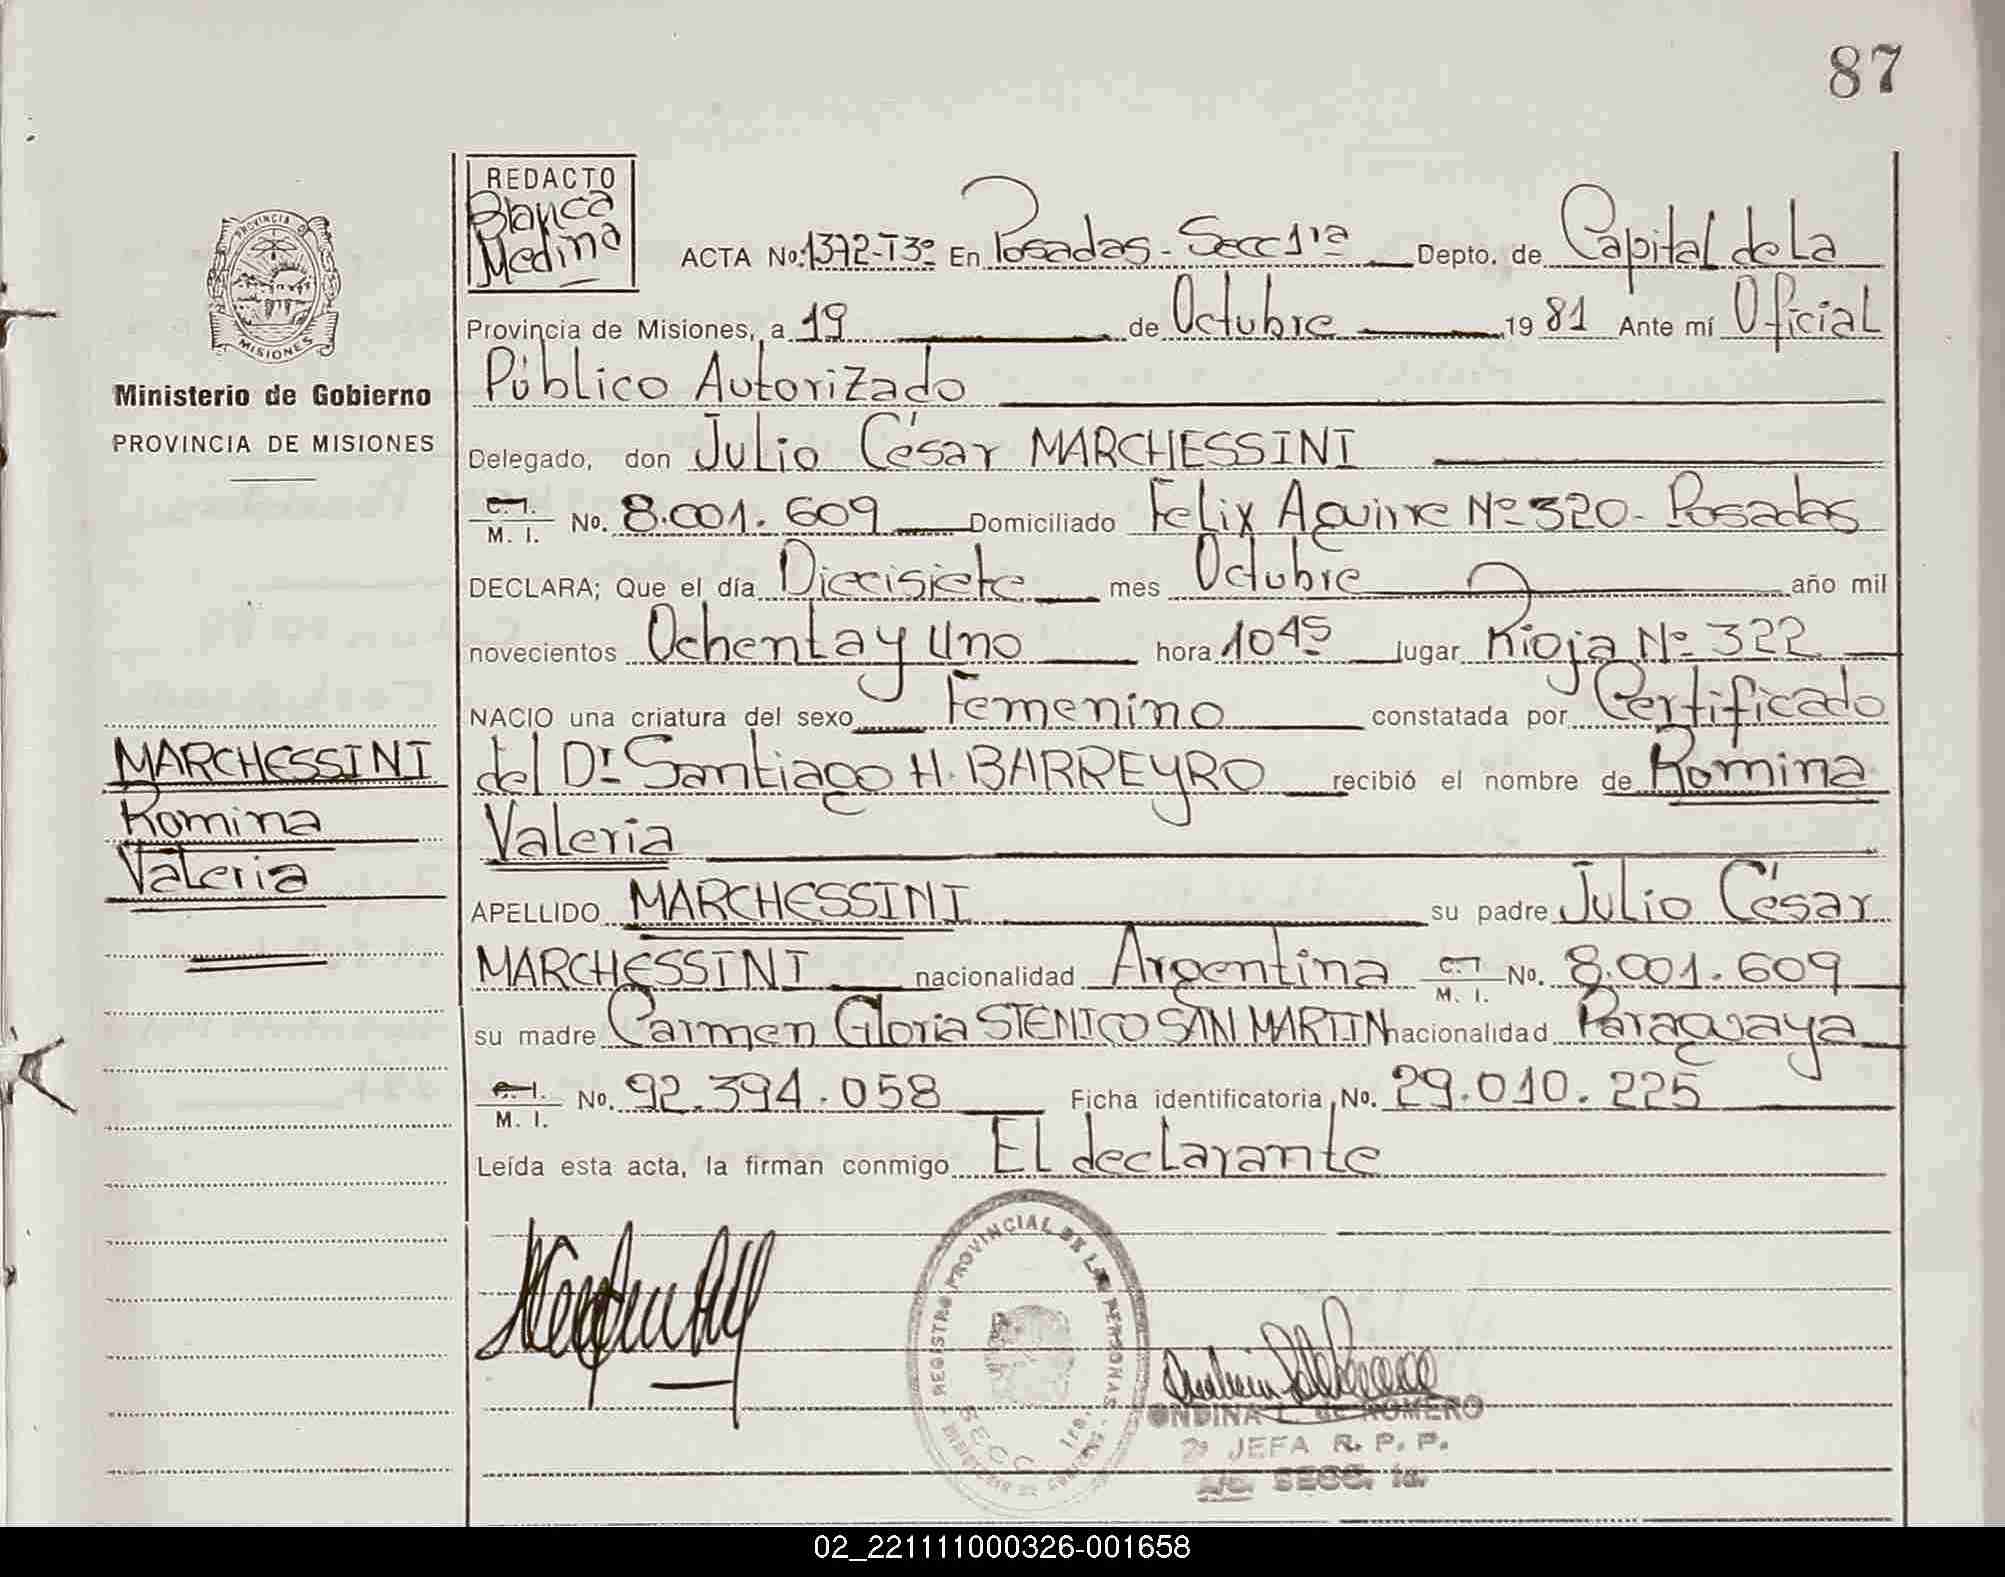 87
REDACTO
Blanca
Medina
ACTA No: 1372-T3º En Posadas - Secc 1ra Depto. de Capital de La
Provincia de Misiones, a 19 de Octubre 19 81 Ante mí Oficial
Público Autorizado
Delegado, don Julio César MARCHESSINI
C.I. M. I. No. 8.001.609 Domiciliado Felix Aguirre Nº 320 - Posadas
DECLARA; Que el día Diecisiete mes Octubre año mil
novecientos Ochenta y Uno hora 10 45 lugar Rioja Nº 322
NACIO una criatura del sexo Femenino constatada por Certificado
del Dr Santiago H. BARREYRO recibió el nombre de Romina
Valeria
APELLIDO MARCHESSINI su padre Julio César
MARCHESSINI nacionalidad Argentina C.I. M. I. No. 8.001.609
su madre Carmen Gloria STENICO SAN MARTIN nacionalidad Paraguaya
C.I. M. I. No. 92.394.058 Ficha identificatoria No. 29.010.225
Leída esta acta, la firman conmigo El declarante
PROVINCIA D
MISIONES
Ministerio de Gobierno
PROVINCIA DE MISIONES
MARCHESSINI
Romina
Valeria
REGISTRO PROVINCIAL DE LAS PERSONAS
SECC 1ra.
ONDINA L. de ROMERO
2ª JEFA R. P. P.
A/C. SECC. 1a.
02_221111000326-001658